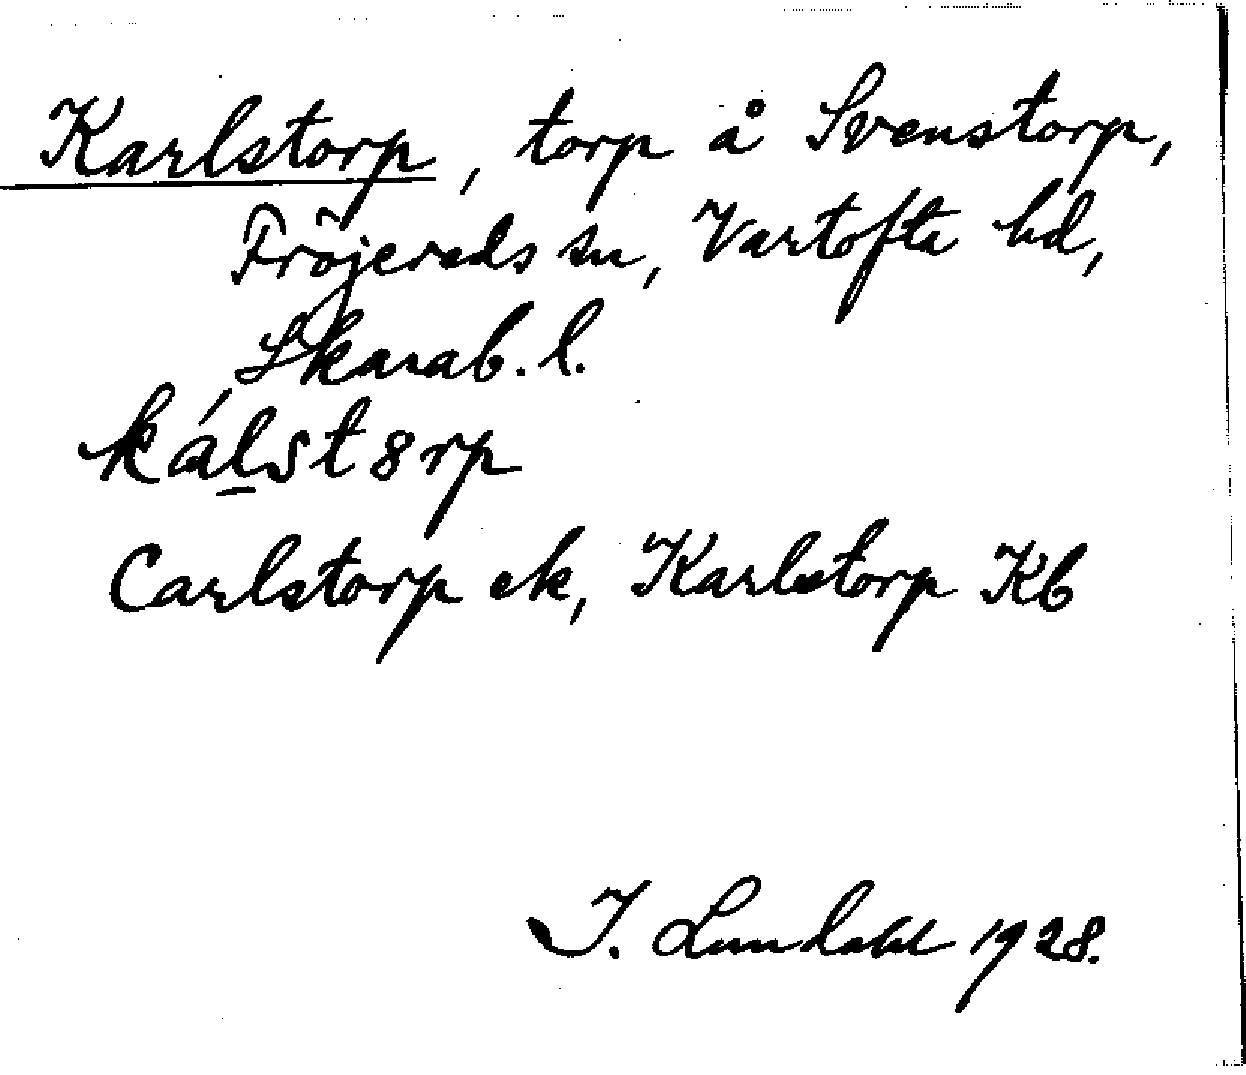 Karlstorp, torp å Svenstorp,
Fröjereds sn, Vartofta hd,
Skarab. l.
kálst8rp
Carlstorp ek, Karlstorp Kb
I. Lundahl 1928.